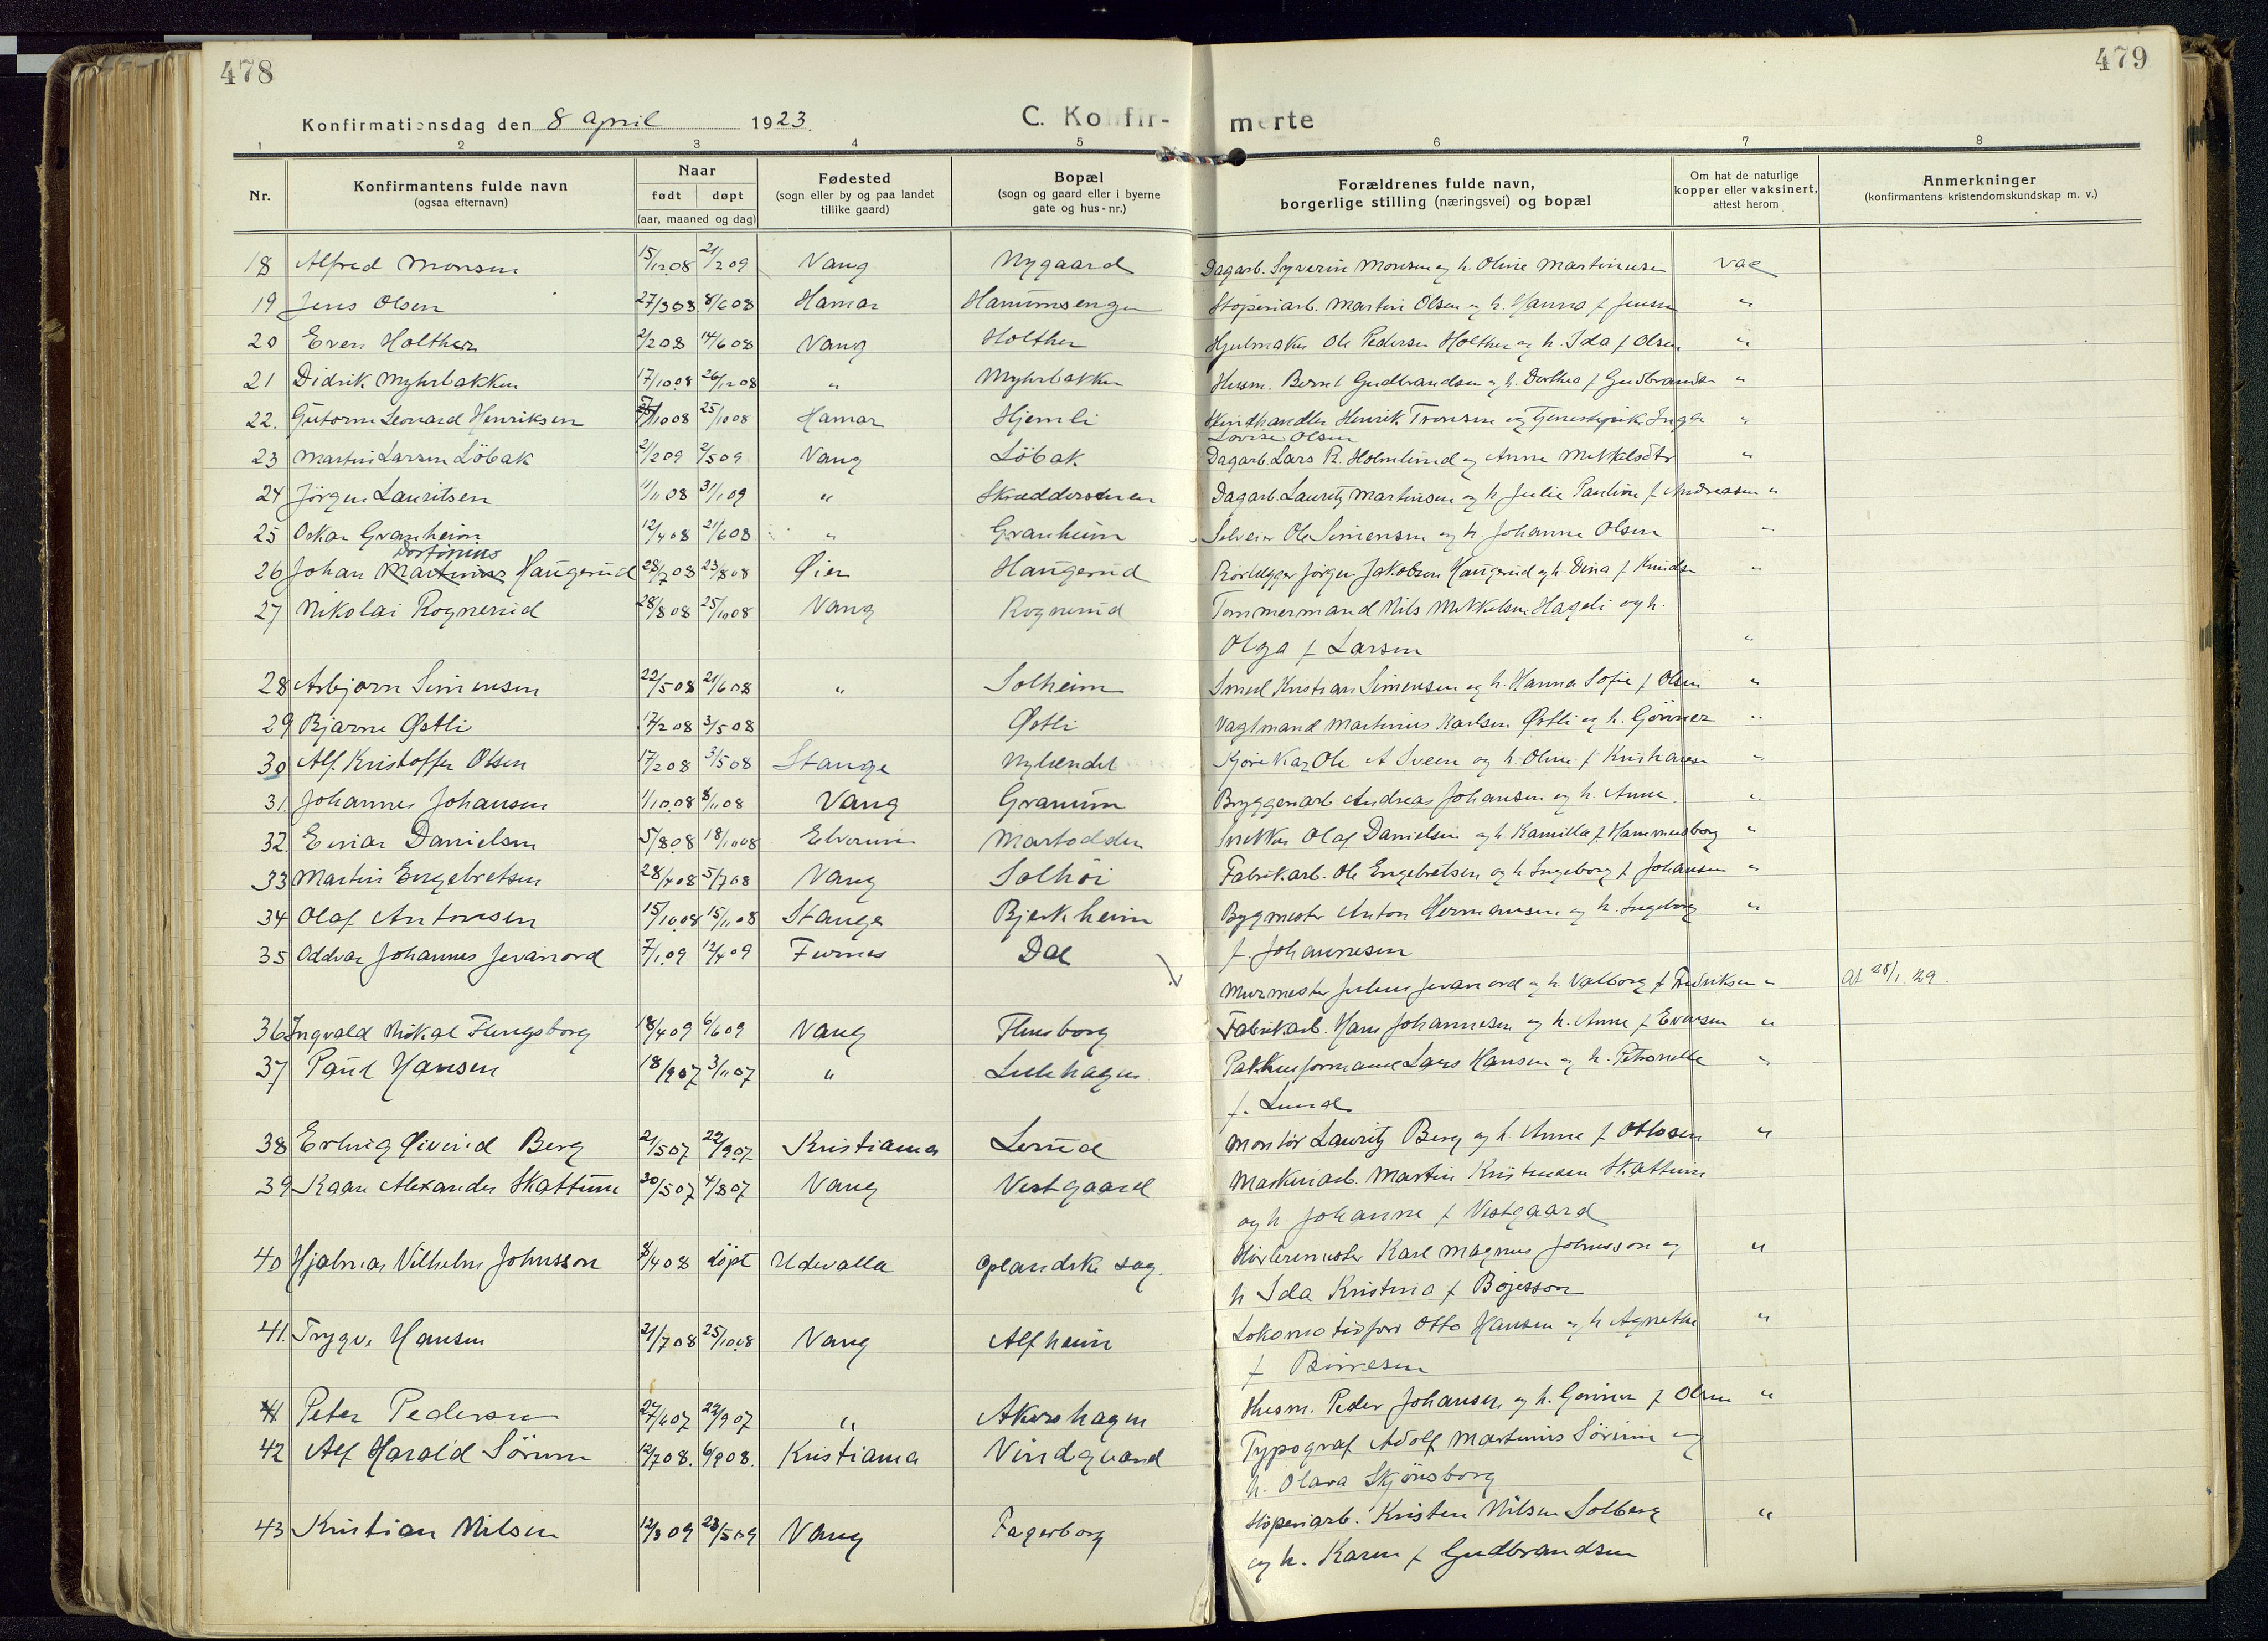 478
479
Konfirmationsdag den 8 april 1923.
C. Konfir-
merte
1 2 3 4 5 6 7 8
Nr.
Konfirmantens fulde navn
(ogsaa efternavn)
Naar
født døpt
(aar, maaned og dag)
Fødested
(sogn eller by og paa landet
tillike gaard)
Bopæl
(sogn og gaard eller i byerne
gate og hus-nr.)
Forældrenes fulde navn,
borgerlige stilling (næringsvei) og bopæl
Om hat de naturlige
kopper eller vaksinert,
attest herom
Anmerkninger
(konfirmantens kristendomskundskap m. v.)
18 Alfred Monsen 15/12 08 21/2 09 Vang Nygaard Dagarb. Syverin Monsen og h. Oline Martinusen vac
19 Jens Olsen 27/3 08 8/6 08 Hamar Hanumsengen Støperiarb. Martin Olsen og h. Hanna f Jensen "
20 Even Holther 2/2 08 14/6 08 Vang Holther Hjulmaker Ole Pedersen Holther og h. Ida f Olsen "
21 Didrik Myhrbakken 17/10 08 26/12 08 " Myhrbakken Husm. Bernt Gudbrandsen og h. Dorthea f Gudbrands "
22. Gutorm Leonard Henriksen 10 08 25/10 08 Hamar Hjemli Skindhandler Henrik Tronsen og Tjenestepike Inga "
Lovise Olsen
23 Martin Larsen Löbak 2/2 09 2/5 09 Vang Löbak Dagarb. Lars P. Holmlund og Anne Mikkelsdtr "
24 Jörgen Lauritsen 11/11 08 31/1 09 " Skredderstuen Dagarb. Lauritz Martinsen og h Julie Pauline f Andreasen "
25 Oskar Granheim 12/4 08 21/6 08 " Granheim Selveier Ole Simensen og h Johanne Olsen "
26 Johan Martinius Haugerud 28/7 08 23/8 08 Øier Haugerud Rørlegger Jørgen Jakobsen Haugerud og h. Dina f Knudsn "
27 Nikolai Rognerud 28/8 08 25/10 08 Vang Rognerud Tømmermand Nils Mikkelsen Hageli og h.
Olga f Larsen "
28 Asbjørn Simensen 22/5 08 21/6 08 " Solheim Smed Kristian Simensen og h. Hanna Sofie f Olsen "
29 Bjarne Østli 17/2 08 3/5 08 Østli Vagtmand Martinius Karlsen Østli og h. Görinner "
30 Alf Kristoffer Olsen 17/2 08 3/5 08 Stange Nylændet Kjörekar Ole A Sveen og h. Oline f Kristiansen "
31. Johannes Johansen 1/10.08 8/11 08 Vang Granum Bryggeriarb Andreas Johansen og h. Anne "
32. Einar Danielsen 5/8 08 18/10 08 Elverum Martodden Snekker Olaf Danielsen og h Kamilla f Hammersborg "
33 Martin Engebretsen 28/4 08 5/7 08 Vang Solhöi Fabrikarb. Ole Engebretsen og h. Ingeborg f Johansen "
34 Olaf Antonsen 15/10.08 15/11 08 Stange Bjerkheim Bygmester Anton Hermansen og h. Ingeborg "
f. Johannesen
35 Oddvar Johannes Jevanord 7/1 09 12/4 09 Furnes Dal Murmester Julius Jevanord og h. Valborg f Fredriksen " At 28/1 29.
36 Ingvald Mikal Flengsborg 18/4 09 6/6 09 Vang Flensborg Fabrikarb. Hans Johannesen og h. Anne f Evensen "
37 Paul Hansen 18/9 07 3/11 07 " Lillehagen Pakhusformand Lars Hansen og h. Petronelle "
f. Lund
38 Erling Øivind Berg 21/5 07 22/9 07 Kristiania Lerud Montör Lauritz Berg og h. Anne f Ottosen "
39 Kaare Alexander Skattum 30/5 07 4/8 07 Vang Vestgaard Maskinarb. Martin Kristensen Skattum
og h Johanne f Vestgaard
40 Hjalmar Vilhelm Johnsson 8/4 08 döpt Udevalla Oplandske sag. Karl Magnus Johnsson og "
h Ida Kristina f Bojesson
41. Trygve Hansen 21/7 08 25/10.08 Vang Alfheim Lokomotivfør Otto Hansen og h Agnethe "
f Birresen
41 Peter Pedersen 27/6 07 22/9 07 " Akershagen Husm. Peder Johansen og h. Gorinea f Olsen "
42 Alf Harald Sörum 12/7 08. 6/9 08. Kristiania Vindqvand Typograf Adolf Martinius Sörum og
h. Olava Skjönsborg
43 Kristian Nilsen 12/3 09 23/5 09 Vang Fagerborg Støperiarb. Kristen Nilsen Solberg "
og h. Karen f Gudbrandsen